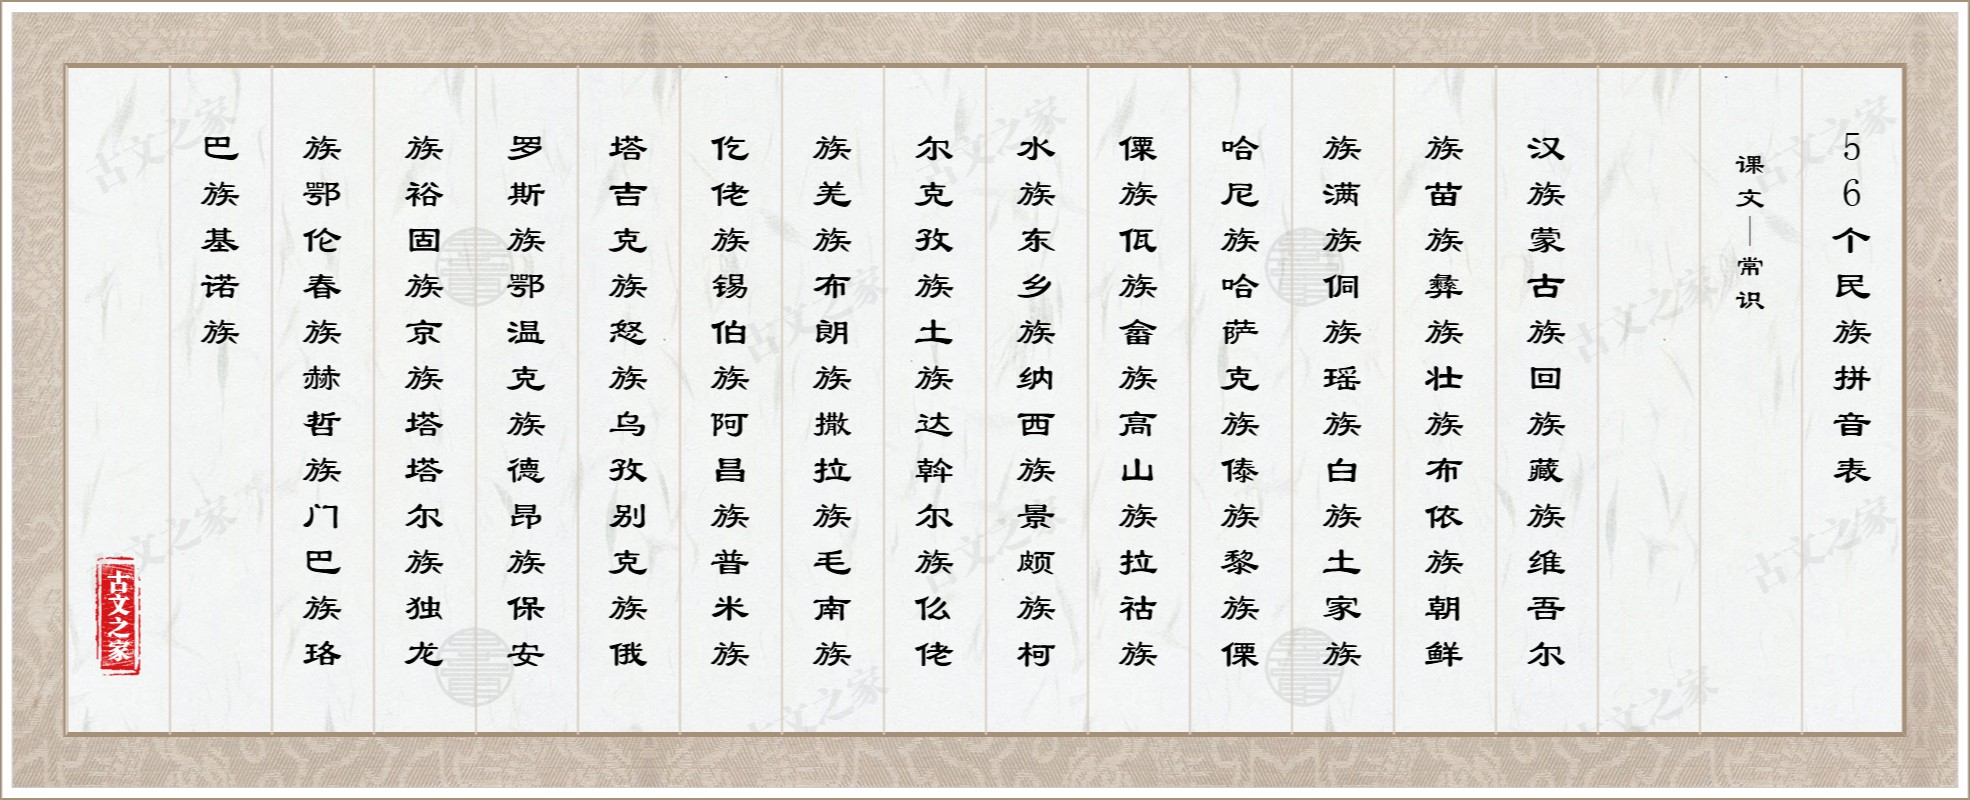 56个民族拼音表
课文—常识
汉族蒙古族回族藏族维吾尔
族苗族彝族壮族布依族朝鲜
族满族侗族瑶族白族土家族
哈尼族哈萨克族傣族黎族傈
僳族佤族畲族高山族拉祜族
水族东乡族纳西族景颇族柯
尔克孜族土族达斡尔族仫佬
族羌族布朗族撒拉族毛南族
仡佬族锡伯族阿昌族普米族
塔吉克族怒族乌孜别克族俄
罗斯族鄂温克族德昂族保安
族裕固族京族塔塔尔族独龙
族鄂伦春族赫哲族门巴族珞
巴族基诺族
古文之家